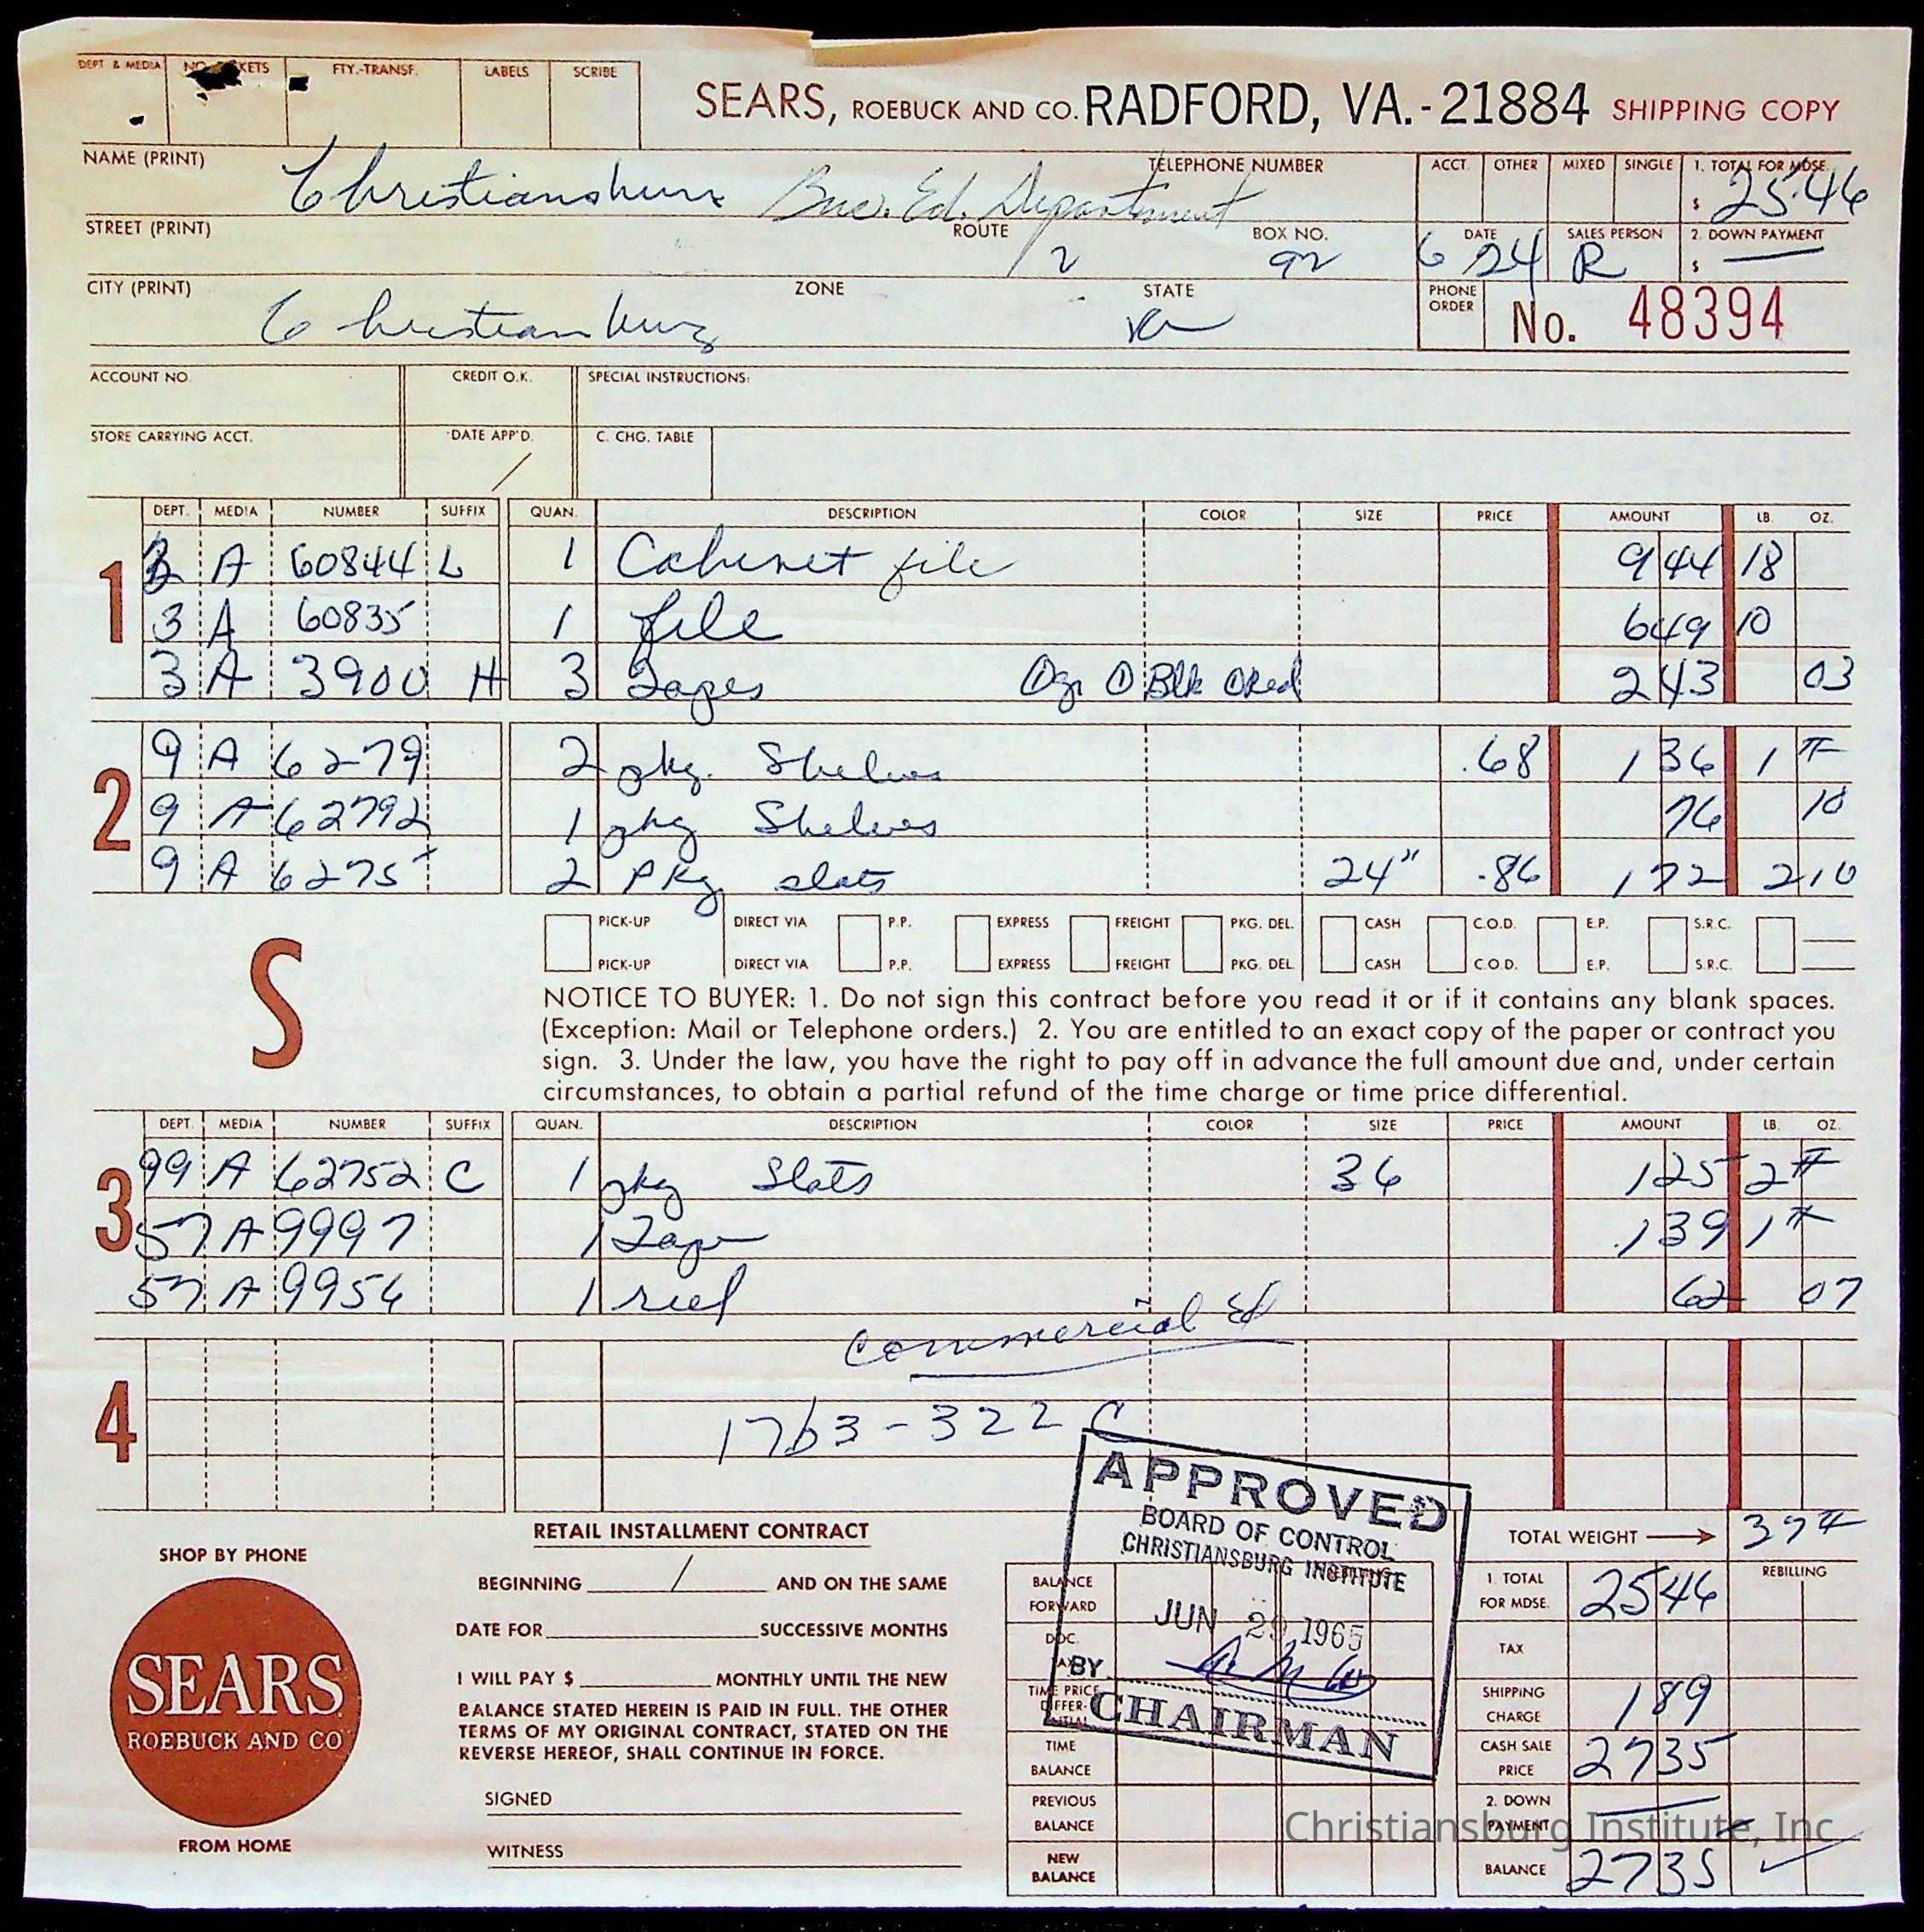 DEPT & MEDIA NO. TICKETS FTY.-TRANSF. LABELS SCRIBE
SEARS, ROEBUCK AND CO. RADFORD, VA.-21884 SHIPPING COPY
NAME (PRINT) Christiansburg Bus. Ed. Department TELEPHONE NUMBER
ACCT. OTHER MIXED SINGLE 1. TOTAL FOR MDSE. $ 25.46
STREET (PRINT) ROUTE 2 BOX NO. 92
DATE 6 24 SALES PERSON R 2. DOWN PAYMENT $ —
CITY (PRINT) Christiansburg ZONE STATE Va
PHONE ORDER No. 48394
ACCOUNT NO. CREDIT O.K. SPECIAL INSTRUCTIONS:
STORE CARRYING ACCT. DATE APP'D. / C. CHG. TABLE
DEPT. MEDIA NUMBER SUFFIX QUAN. DESCRIPTION COLOR SIZE PRICE AMOUNT LB. OZ.
1
3 A 60844 L 1 Cabinet file 9 44 18
3 A 60835 1 file 6 49 10
3 A 3900 H 3 Tapes Blk Red 2 43 03
2
9 A 6279 2 pkg. Shelves .68 1 36 1 #
9 A 62792 1 pkg Shelves 76 10
9 A 6275 2 Pkg slats 24" .86 1 72 2 10
PICK-UP DIRECT VIA P.P. EXPRESS FREIGHT PKG. DEL. CASH C.O.D. E.P. S.R.C.
PICK-UP DIRECT VIA P.P. EXPRESS FREIGHT PKG. DEL. CASH C.O.D. E.P. S.R.C.
S
NOTICE TO BUYER: 1. Do not sign this contract before you read it or if it contains any blank spaces.
(Exception: Mail or Telephone orders.) 2. You are entitled to an exact copy of the paper or contract you
sign. 3. Under the law, you have the right to pay off in advance the full amount due and, under certain
circumstances, to obtain a partial refund of the time charge or time price differential.
DEPT. MEDIA NUMBER SUFFIX QUAN. DESCRIPTION COLOR SIZE PRICE AMOUNT LB. OZ.
3
99 A 62752 C 1 pkg Slats 36 1 25 2 #
57 A 9997 1 Tape 1 39 1 #
57 A 9956 1 reel 62 07
Commercial Ed
4
1763-322 C
APPROVED
BOARD OF CONTROL
CHRISTIANSBURG INSTITUTE
JUN 29 1965
BY
CHAIRMAN
TOTAL WEIGHT 37 #
SHOP BY PHONE
SEARS
ROEBUCK AND CO
FROM HOME
RETAIL INSTALLMENT CONTRACT
BEGINNING / AND ON THE SAME
DATE FOR SUCCESSIVE MONTHS
I WILL PAY $ MONTHLY UNTIL THE NEW
BALANCE STATED HEREIN IS PAID IN FULL. THE OTHER
TERMS OF MY ORIGINAL CONTRACT, STATED ON THE
REVERSE HEREOF, SHALL CONTINUE IN FORCE.
SIGNED
WITNESS
BALANCE FORWARD
DOC. TAX
TIME PRICE DIFFER-ENTIAL
TIME BALANCE
PREVIOUS BALANCE
NEW BALANCE
1. TOTAL FOR MDSE. 25 46 REBILLING
TAX
SHIPPING CHARGE 1 89
CASH SALE PRICE 27 35
2. DOWN PAYMENT —
BALANCE 27 35
Christiansburg Institute, Inc